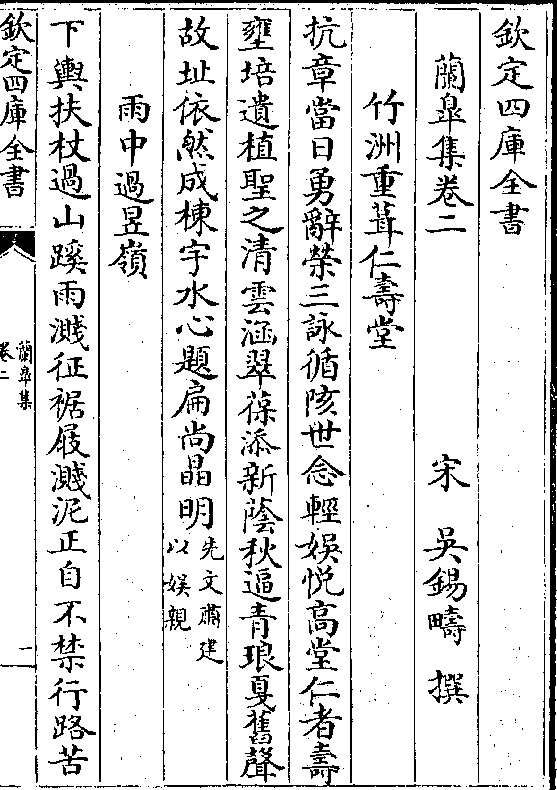 欽定四庫全書
蘭臯集卷二
宋 吳錫疇 撰
竹洲重葺仁壽堂
抗章當日勇辭榮三詠循陔世念輕娛悅高堂仁者壽
壅培遺植聖之清雲涵翠葆添新蔭秋逼青琅戛舊聲
故址依然成棟宇水心題扁尚晶明先文肅建
以娛親
雨中過昱嶺
下輿扶杖過山蹊雨濺征裾屐濺泥正自不禁行路苦
欽定四庫全書
蘭臯集
卷二
一